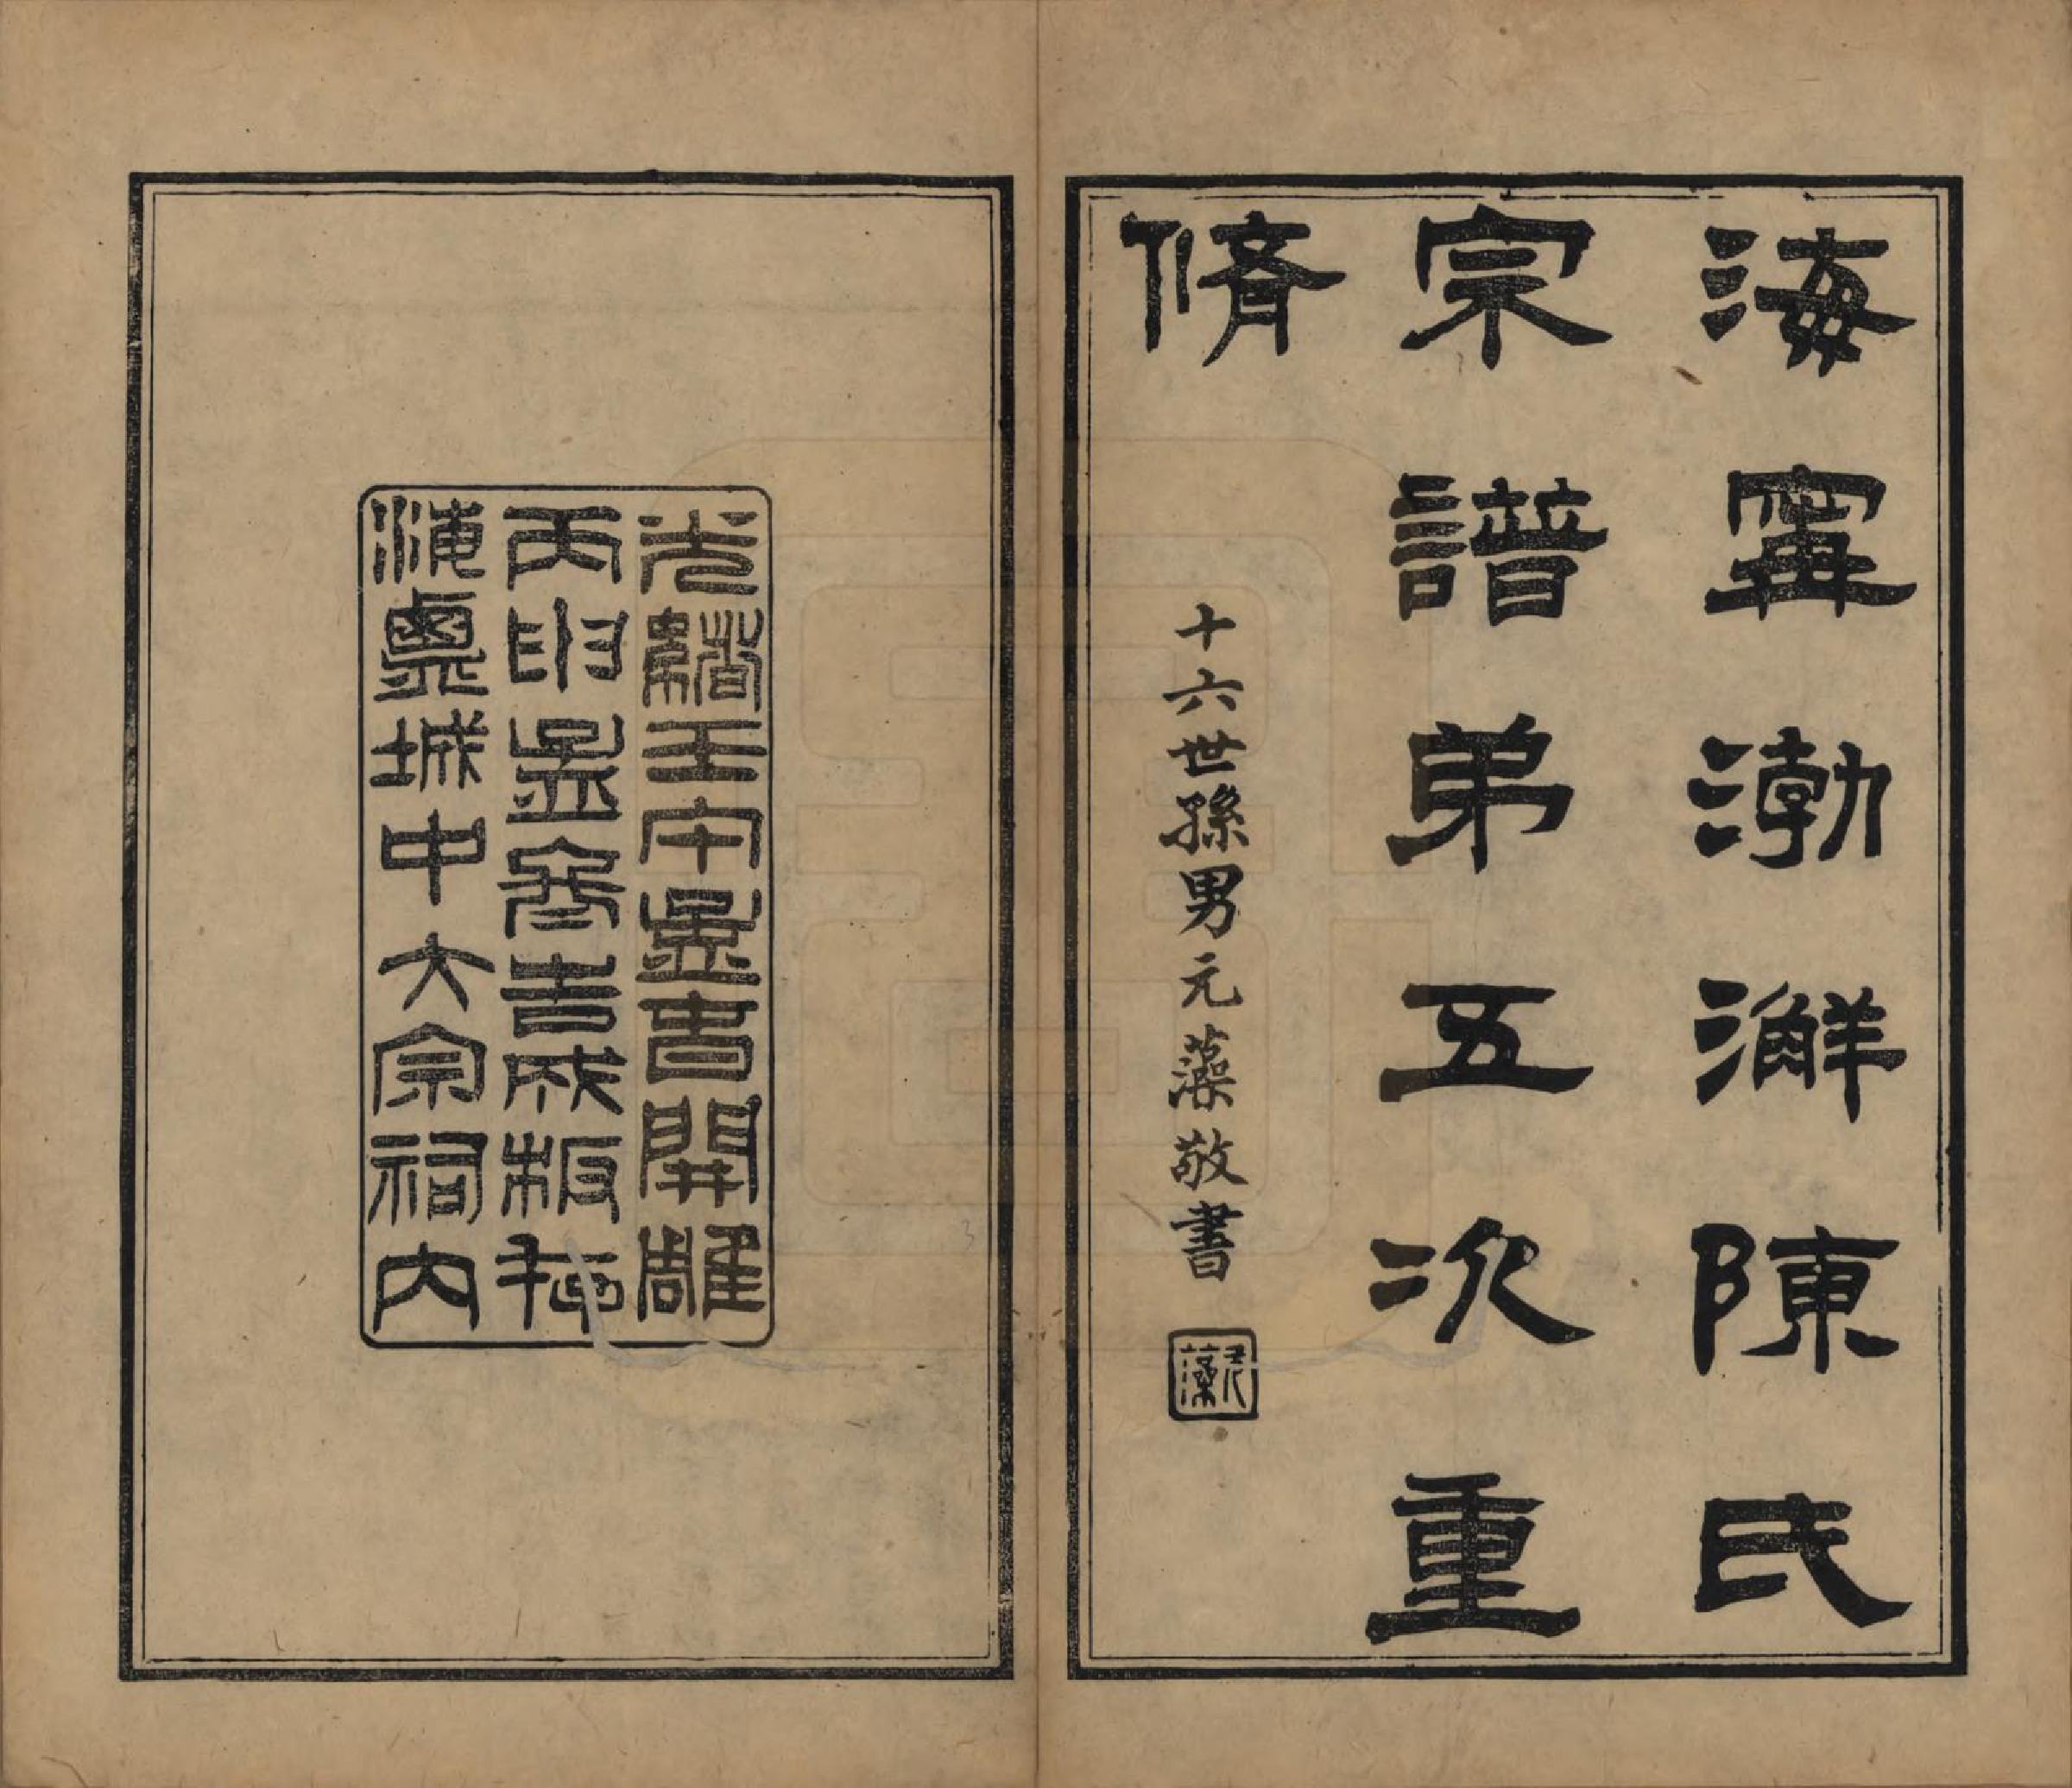 海寧渤澥陳氏
宗譜弟五次重
脩
十六世孫男元藻敬書
元藻
光緒壬午孟春開雕
丙申孟冬告成板
海城中大宗祠內